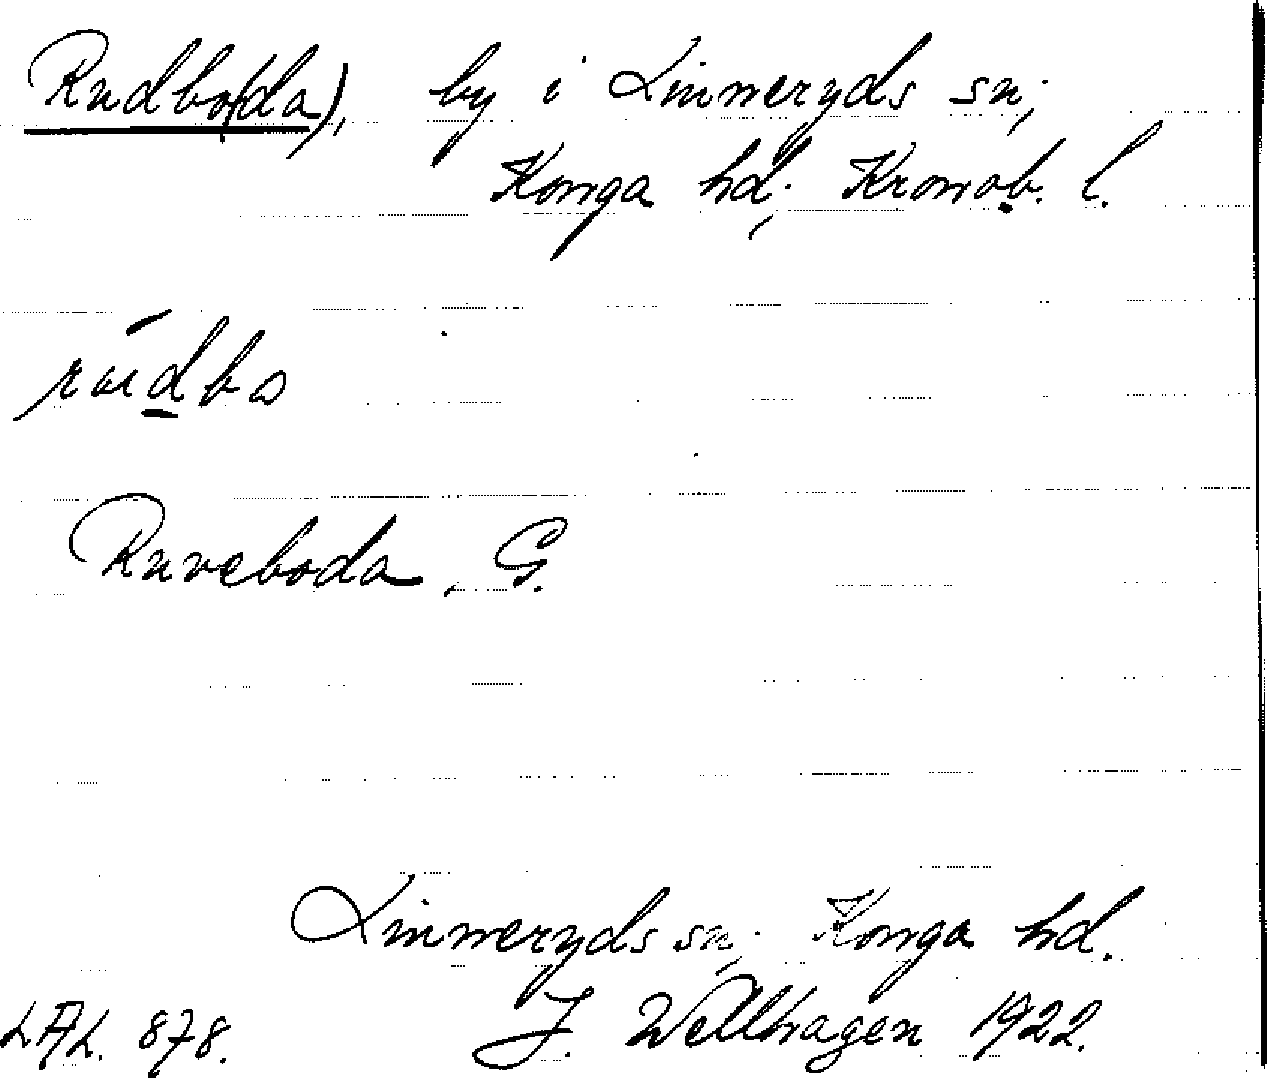 Rudbo(da), by i Linneryds sn;
Konga hd; Kronob. l.
Ruveboda, G.
Linneryds sn; Konga hd.
LAL. 878. J. Wellhagen 1922.